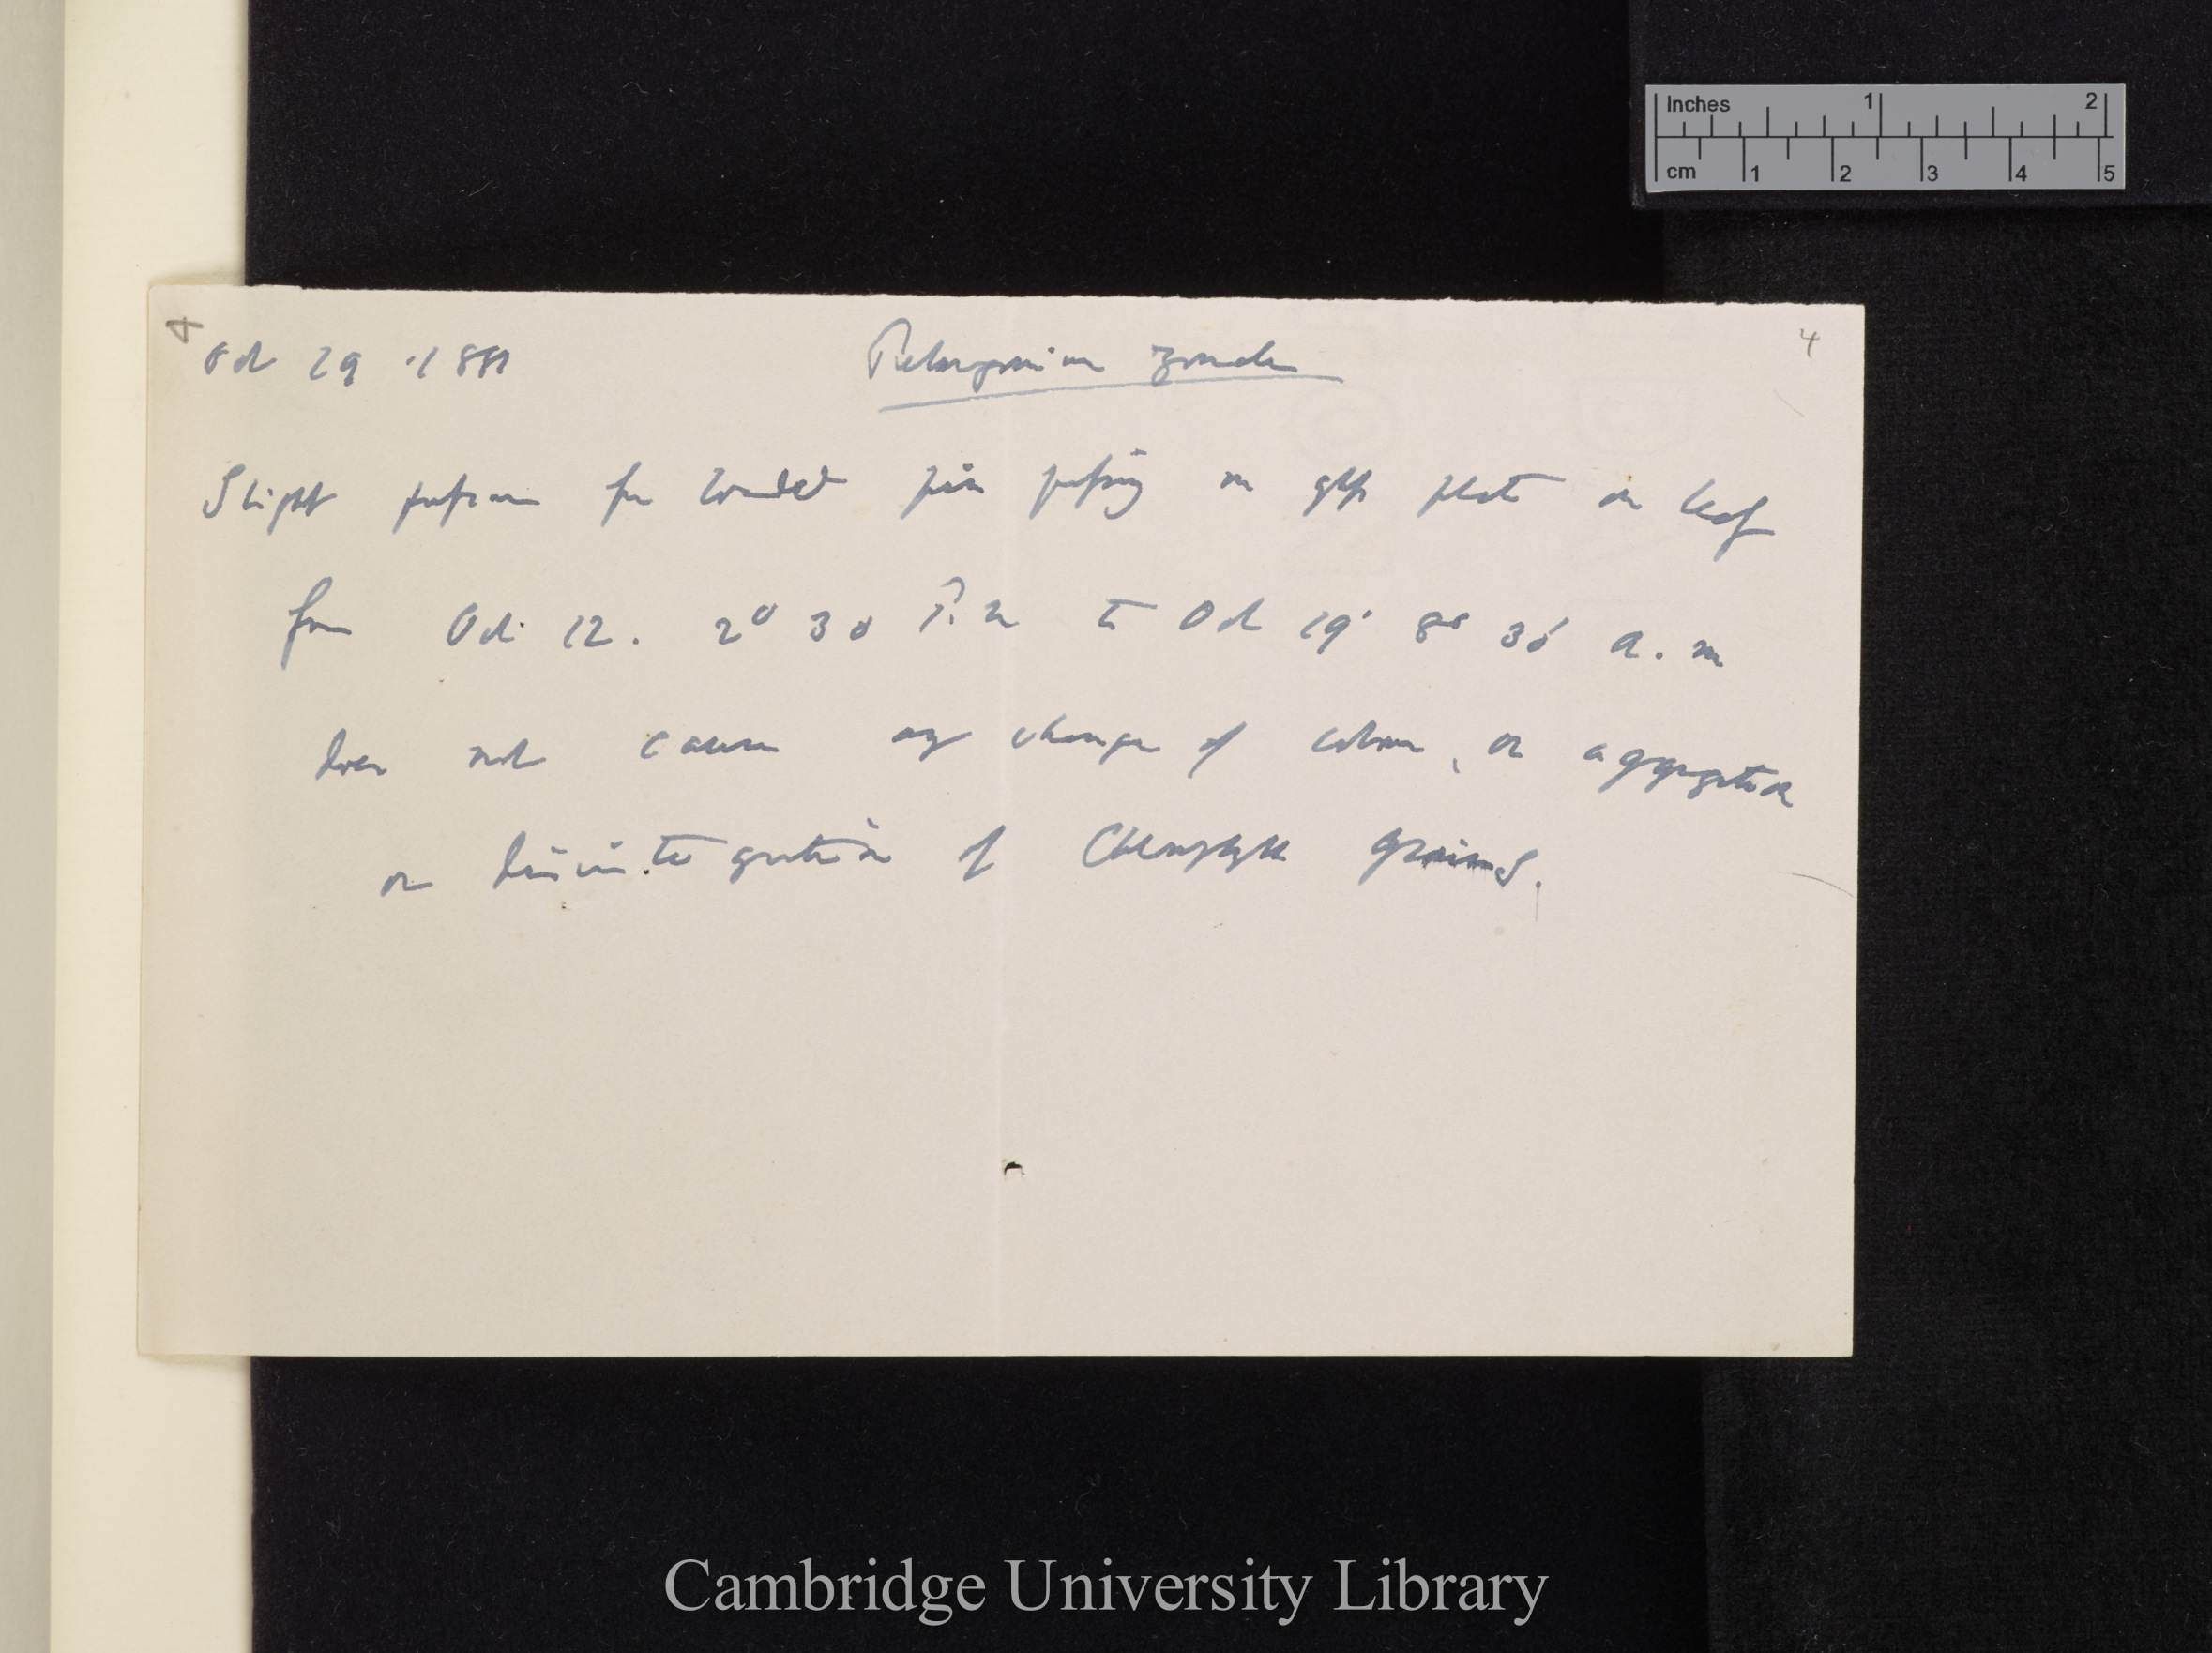 Inches 1 2
cm 1 2 3 4 5
4 4
Oct 19 · 1881 Pelargonium zonale
Slight pressure for loaded pin pressing on glass plate on leaf
from Oct. 12. 2° 30 P.m to Oct 19' 8° 30' a.m
does not cause any change of colour, or aggregation
or disintegration of Chlorophyll grains.
Cambridge University Library